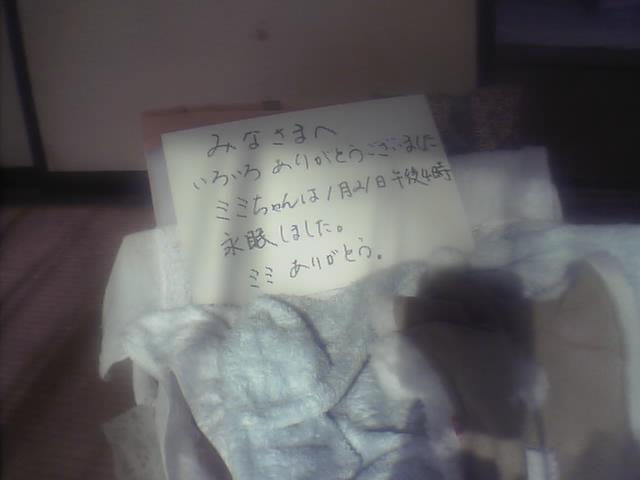 みなさまへ
いろいろありがとうございました
ミミちゃんは1月21日午後4時
永眠しました。
ミミ ありがとう。